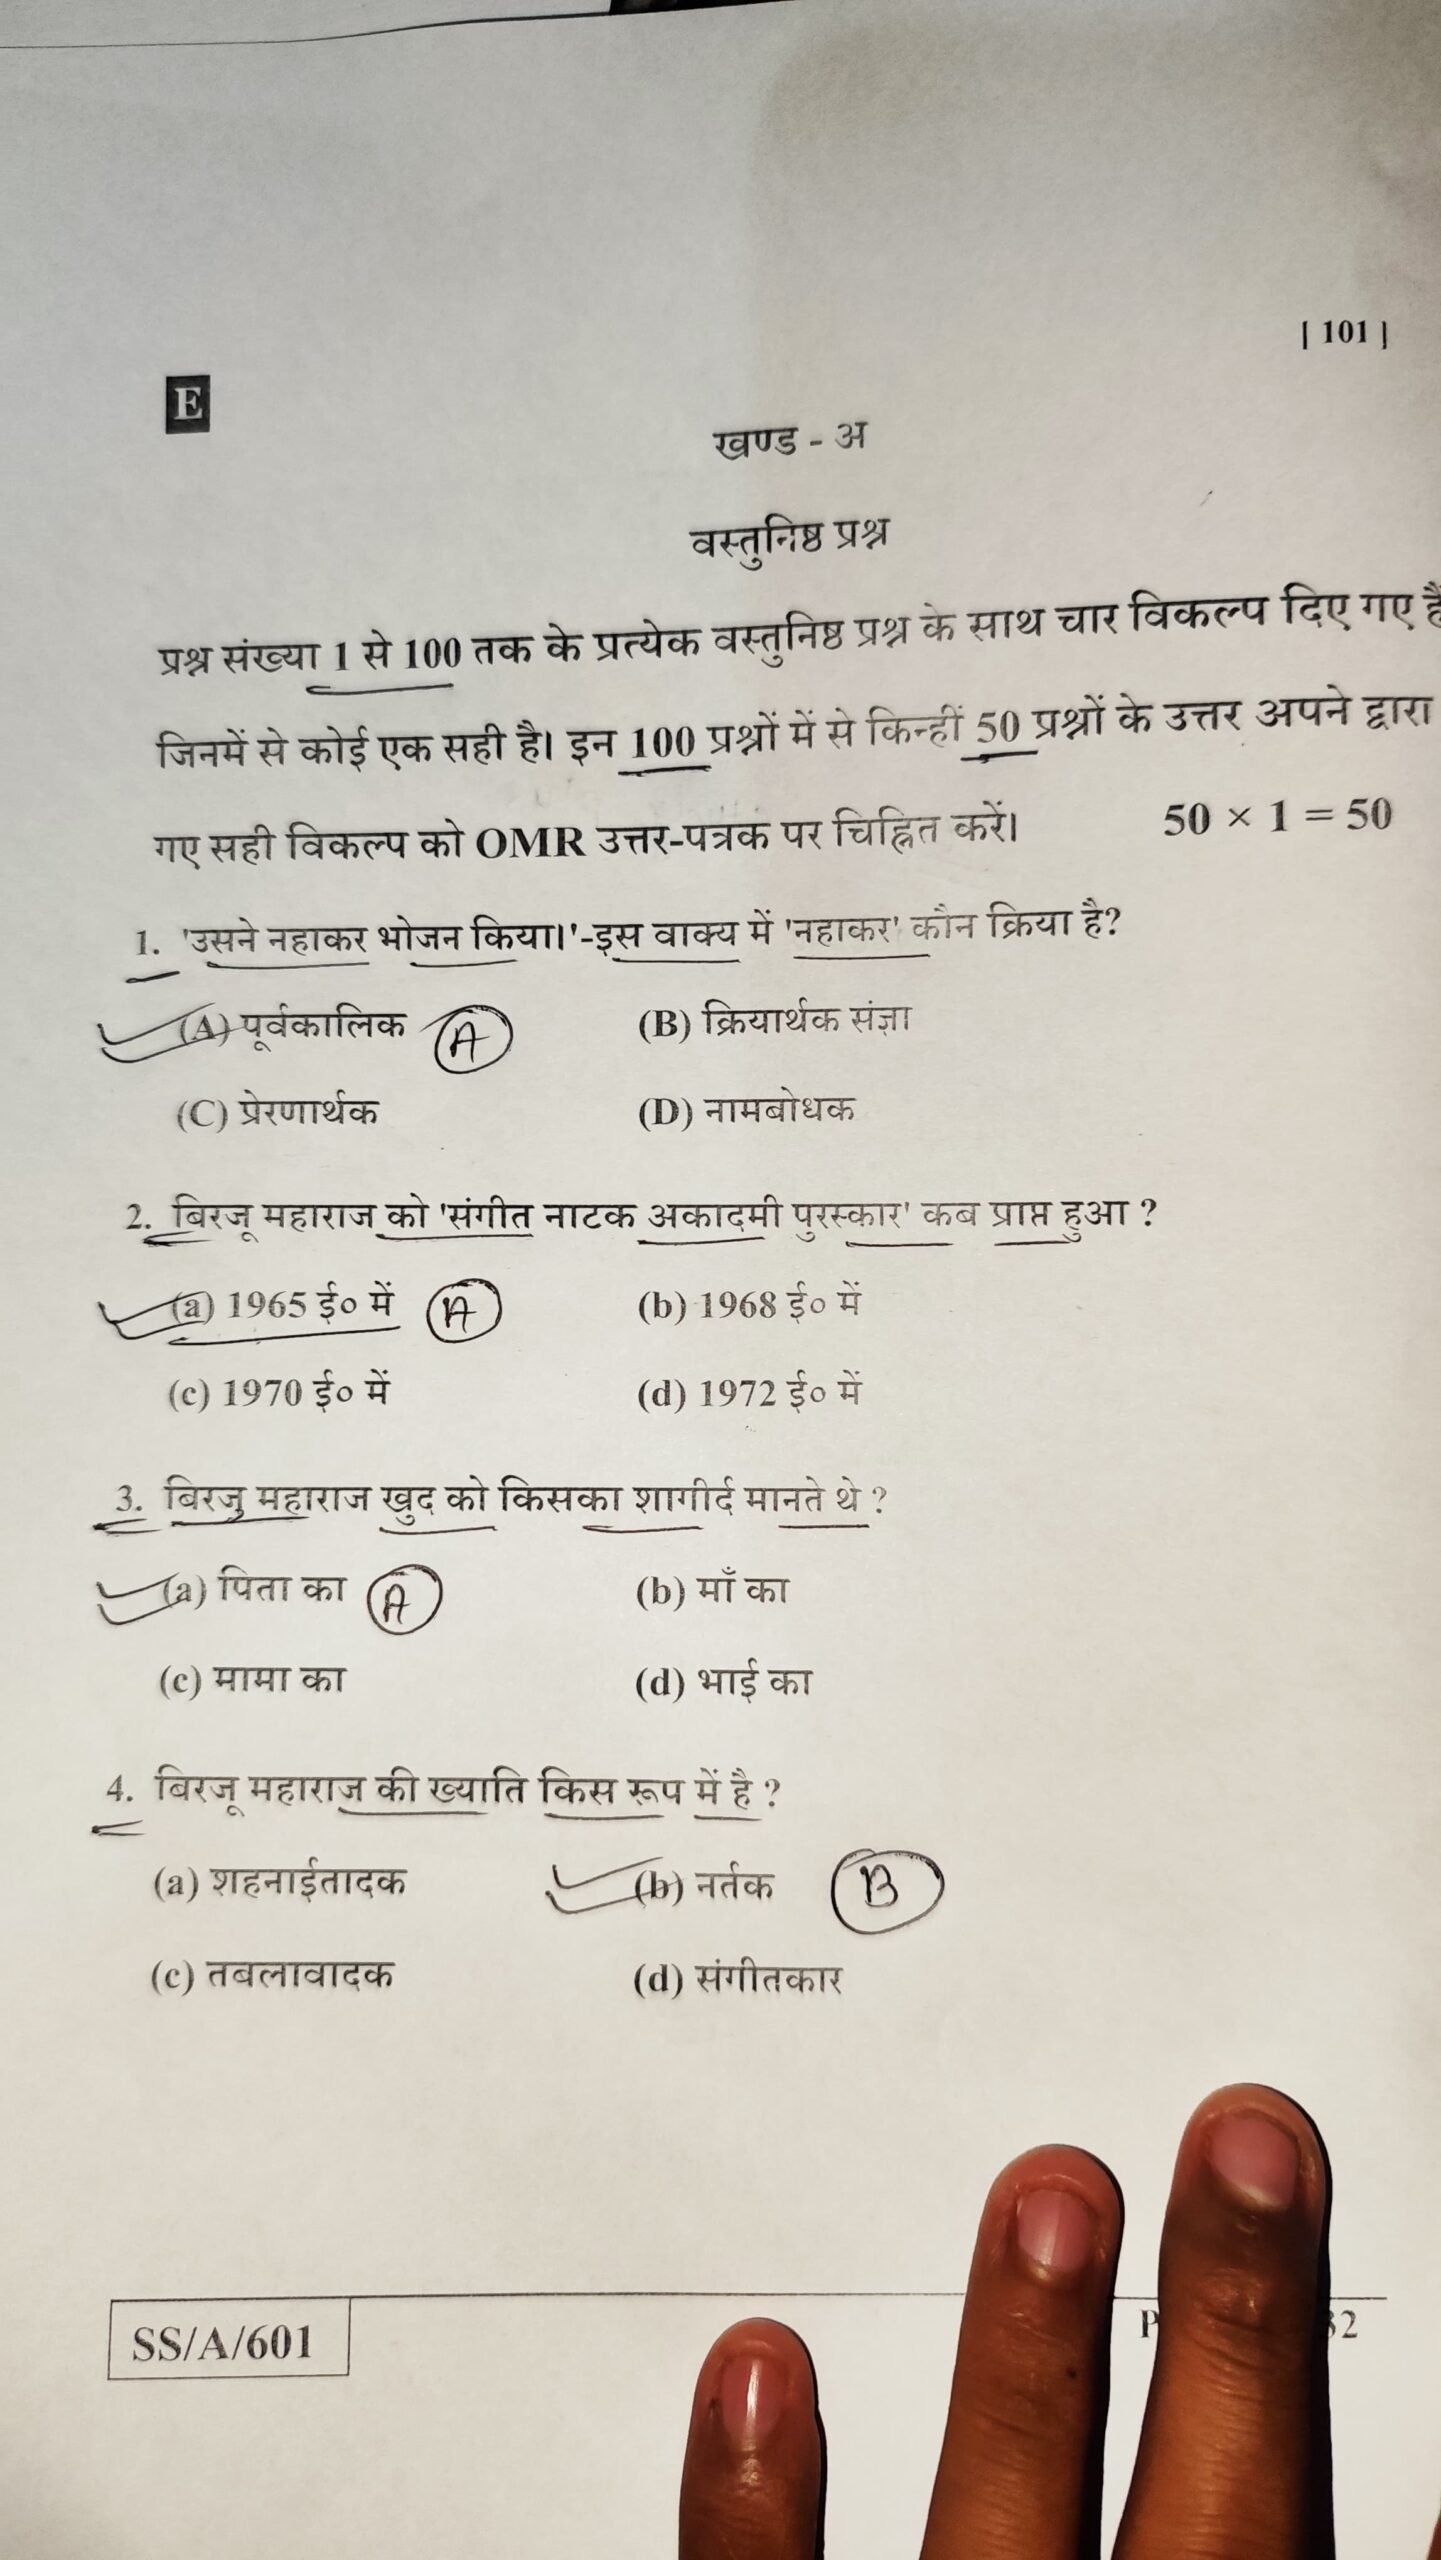 [ 101 ]
E
खण्ड - अ
वस्तुनिष्ठ प्रश्न
प्रश्न संख्या 1 से 100 तक के प्रत्येक वस्तुनिष्ठ प्रश्न के साथ चार विकल्प दिए गए हैं
जिनमें से कोई एक सही है। इन 100 प्रश्नों में से किन्हीं 50 प्रश्नों के उत्तर अपने द्वारा
गए सही विकल्प को OMR उत्तर-पत्रक पर चिह्नित करें। 50 × 1 = 50
1. 'उसने नहाकर भोजन किया।'-इस वाक्य में 'नहाकर' कौन क्रिया है?
(A) पूर्वकालिक A (B) क्रियार्थक संज्ञा
(C) प्रेरणार्थक (D) नामबोधक
2. बिरजू महाराज को 'संगीत नाटक अकादमी पुरस्कार' कब प्राप्त हुआ ?
(a) 1965 ई० में A (b) 1968 ई० में
(c) 1970 ई० में (d) 1972 ई० में
3. बिरजु महाराज खुद को किसका शागीर्द मानते थे ?
(a) पिता का A (b) माँ का
(c) मामा का (d) भाई का
4. बिरजू महाराज की ख्याति किस रूप में है ?
(a) शहनाईतादक (b) नर्तक B
(c) तबलावादक (d) संगीतकार
SS/A/601